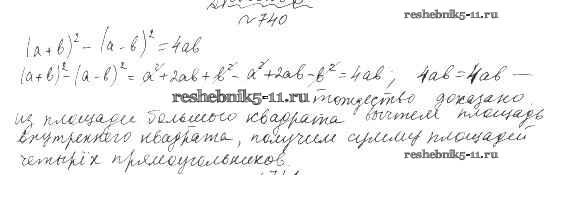 №740
reshebnik5-11.ru
(a+b)² - (a-b)² = 4ab
(a+b)² - (a-b)² = a² + 2ab + b² - a² + 2ab - b² = 4ab; 4ab = 4ab —
reshebnik5-11.ru тождество доказано
из площади большого квадрата вычтем площадь
внутреннего квадрата, получим сумму площадей
четырёх прямоугольников.
reshebnik5-11.ru